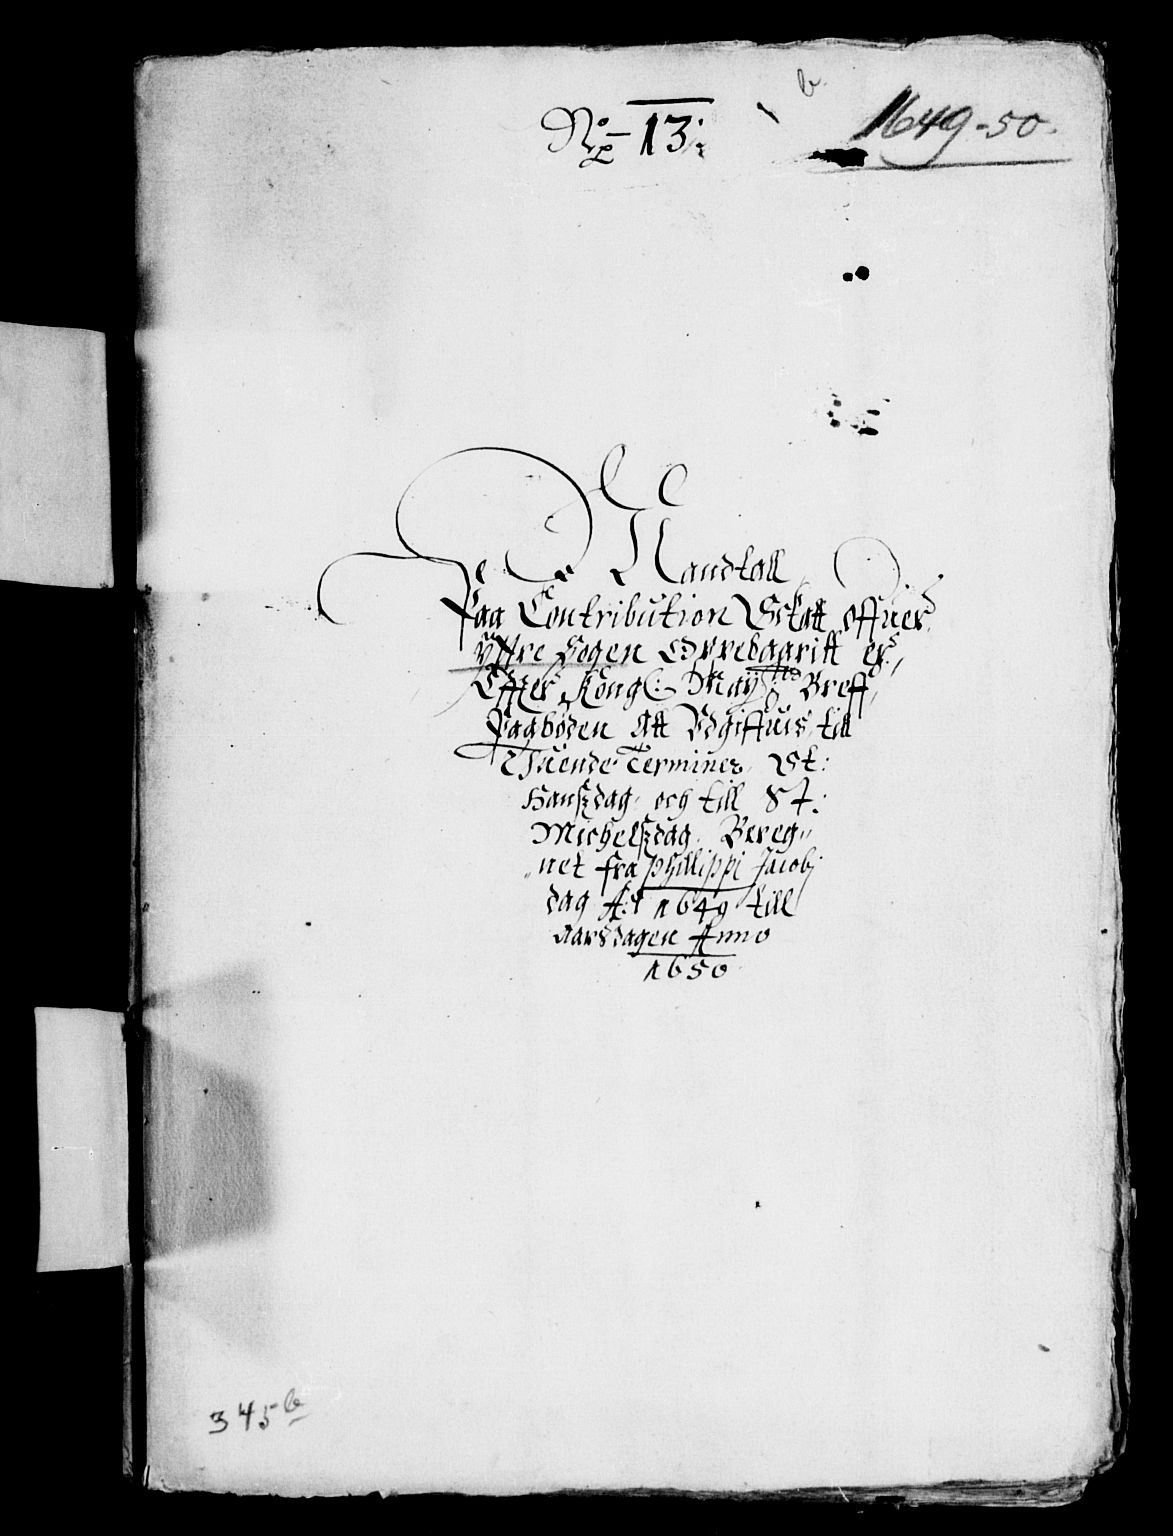 b
No 13:
1649-50.
Mandtall
Paa Contribution Schatt offuer
Yttre Sogen Corredgariitt er,
Effter Kongl: May: tts Breff,
Paabøden Att Vdgiffuis till
Tuende Terminer, St:
Hanszdag och till St:
Michelszdag. Bereg„
„net fra Phillippi Jacobj
dag Ao 1649 till
Aarsdagen Anno
1650
345 b